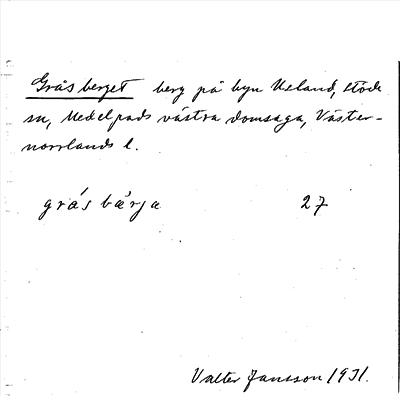 Gråsberget berg på byn Ueland, Stöde
sn, Medelpads västra domsaga, Väster-
norrlands l.
grásbàrja 27
Valter Jansson 1931.